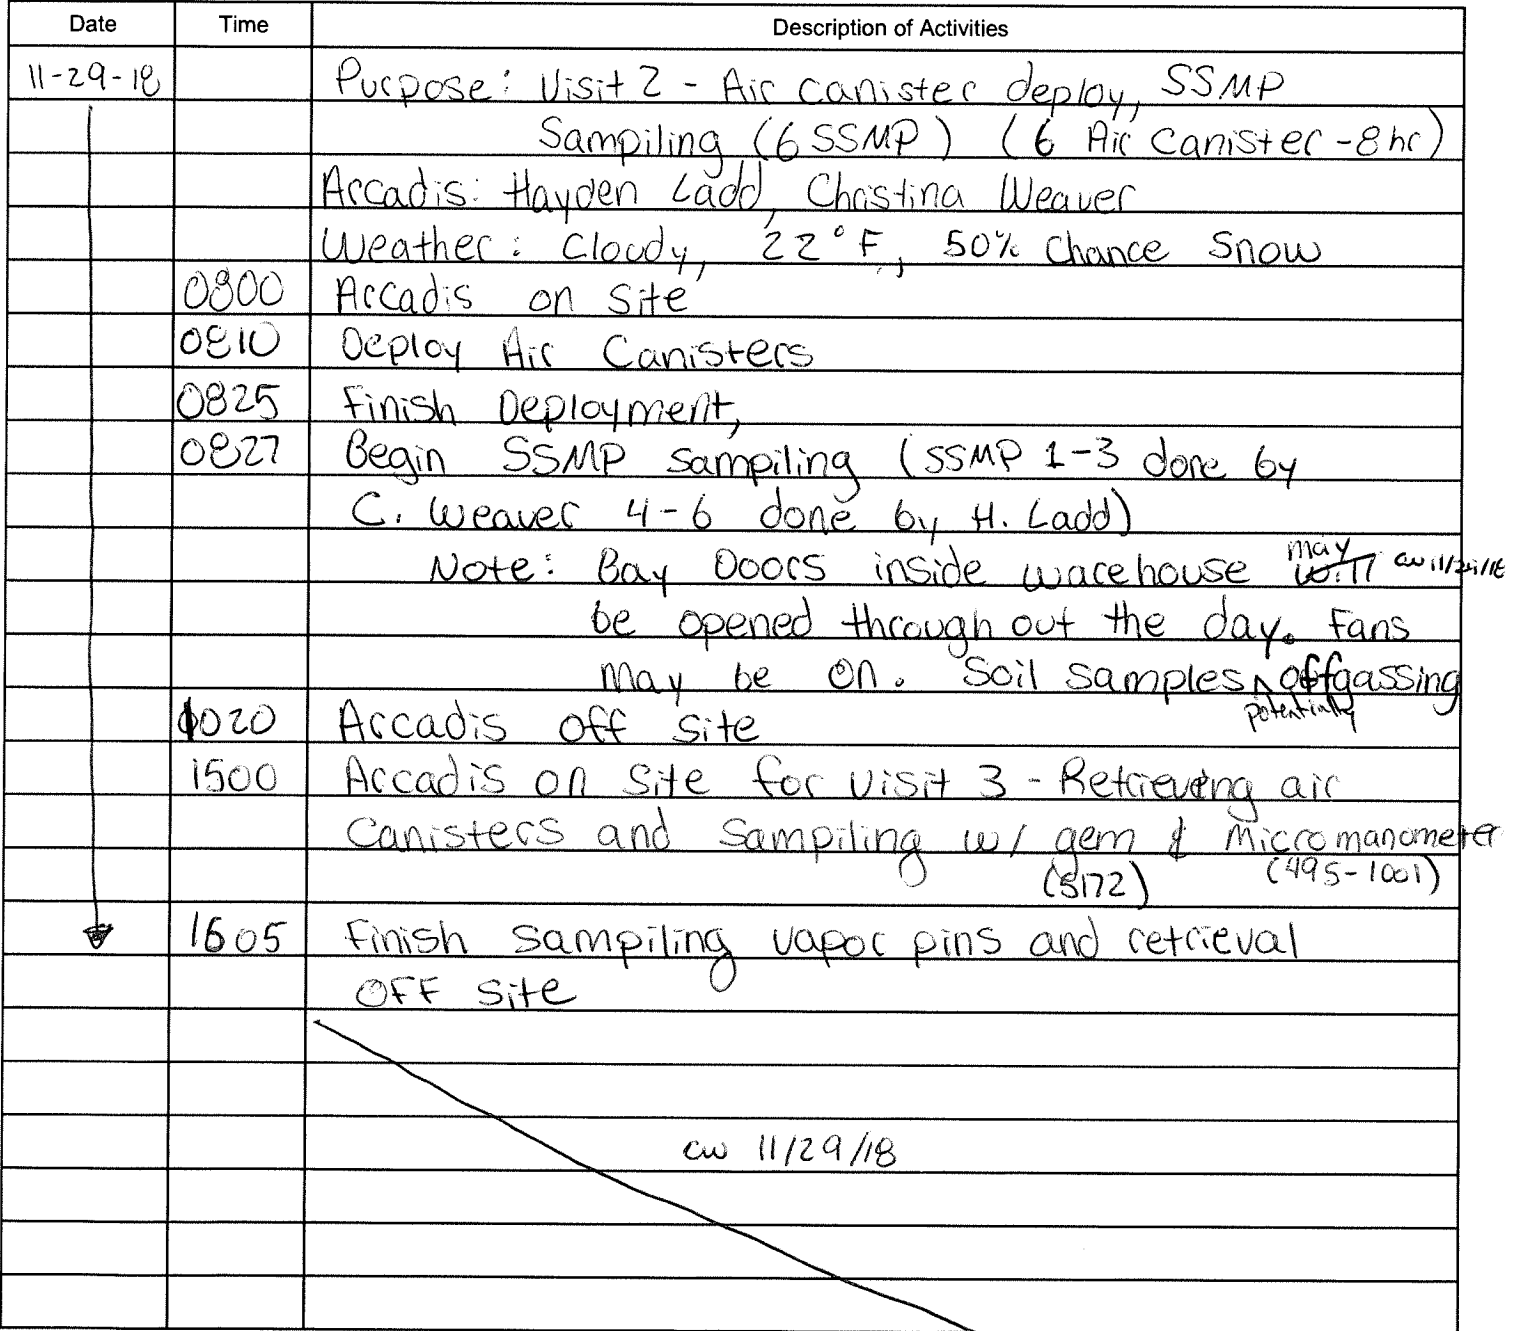 Date Time Description of Activities
11-29-18 Purpose: Visit 2 - Air canister deploy, SSMP
Sampiling (6 SSMP) (6 Air Canister -8hr)
Arcadis: Hayden Ladd, Christina Weaver
Weather: Cloudy, 22°F, 50% Chance Snow
0800 Arcadis on site
0810 Deploy Air Canisters
0825 Finish Deployment,
0827 Begin SSMP sampiling (SSMP 1-3 done by
C. Weaver 4-6 done by H. Ladd)
may
Note: Bay Doors inside warehouse will cw
be opened through out the day. Fans
may be on. Soil samples ^ offgassing
potentially
1020 Arcadis off site
1500 Arcadis on site for visit 3 - Retrieving air
Canisters and Sampiling w/ gem & Micromanometer
(5172) (495-1001)
1605 Finish sampiling vapor pins and retrieval
OFF site
cw 11/29/18